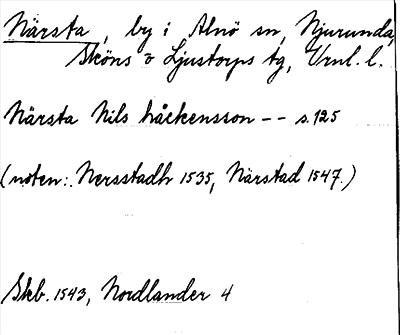 Närsta, by i Alnö sn, Njurunda,
Sköns o Ljustorps tg, Vrnl. l.
Närsta Nils håckensson -- s. 125
(noten: Nersstadh 1535, Närstad 1547.)
Skb. 1543, Nordlander 4